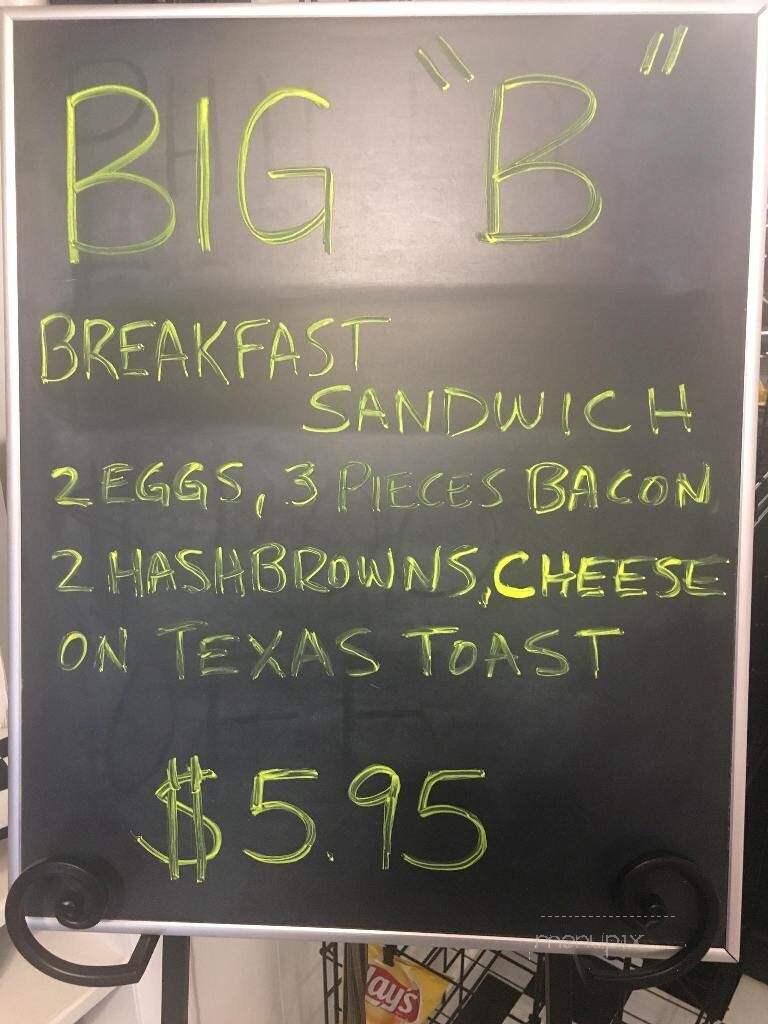 BIG "B"
BREAKFAST
SANDWICH
2 EGGS, 3 PIECES BACON
2 HASHBROWNS, CHEESE
ON TEXAS TOAST
$5.95
menupix
Lay's